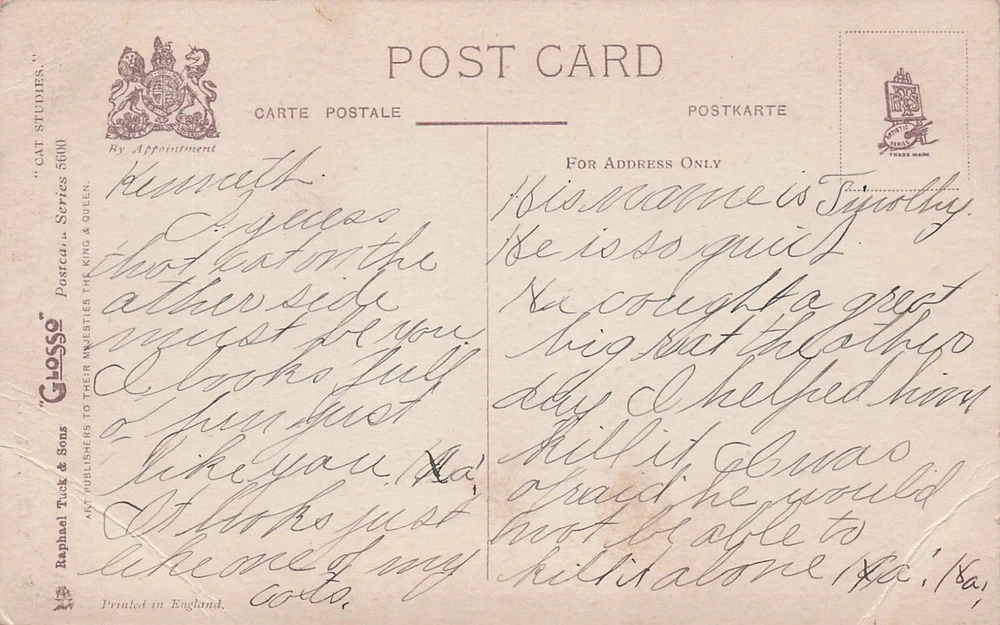 POST CARD
CARTE POSTALE
POSTKARTE
By Appointment
FOR ADDRESS ONLY
TRADE MARK
ARTISTIC
SERIES
"CAT STUDIES."
Raphael Tuck & Sons "GLOSSO" Postcard Series 5600
ART PUBLISHERS TO THEIR MAJESTIES THE KING & QUEEN.
Kenneth.
I guess
that cat on the
other side
must be you
I looks full
o' fun just
like you. Ha!
It looks just
like one of my
cats.
Printed in England.
His name is Timothy.
He is so quiet.
He cought a great
big rat the other
day I helped him
kill it I was
afraid he would
not be able to
kill it alone Ha! Ha!